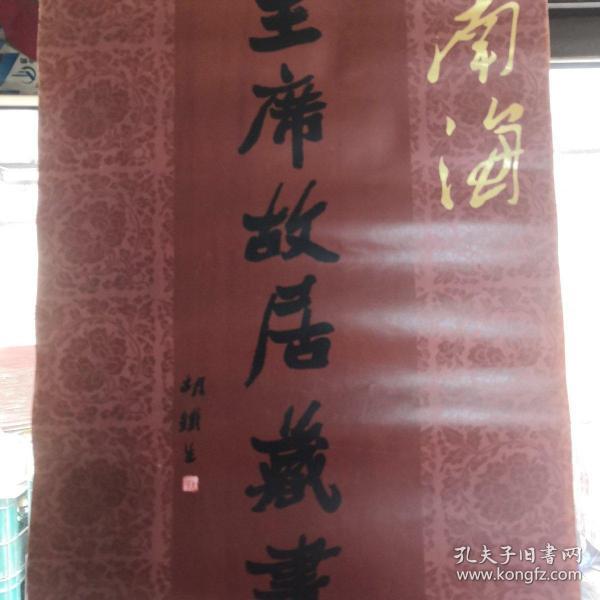 南海
主席故居藏書
胡鐵生
孔夫子旧书网
www.kongfz.com